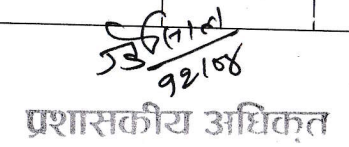 १२/०४
प्रशासकीय अधिकृत